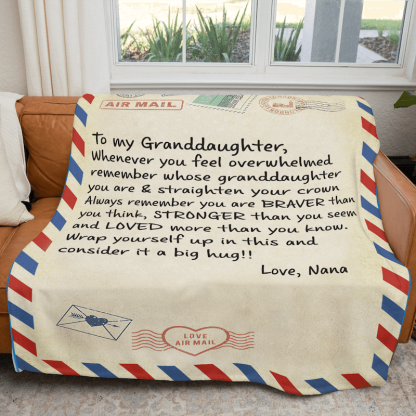 AIR MAIL
To my Granddaughter,
Whenever you feel overwhelmed
remember whose granddaughter
you are & straighten your crown
Always remember you are BRAVER than
you think, STRONGER than you seem
and LOVED more than you know.
Wrap yourself up in this and
consider it a big hug!!
Love, Nana
LOVE
AIR MAIL